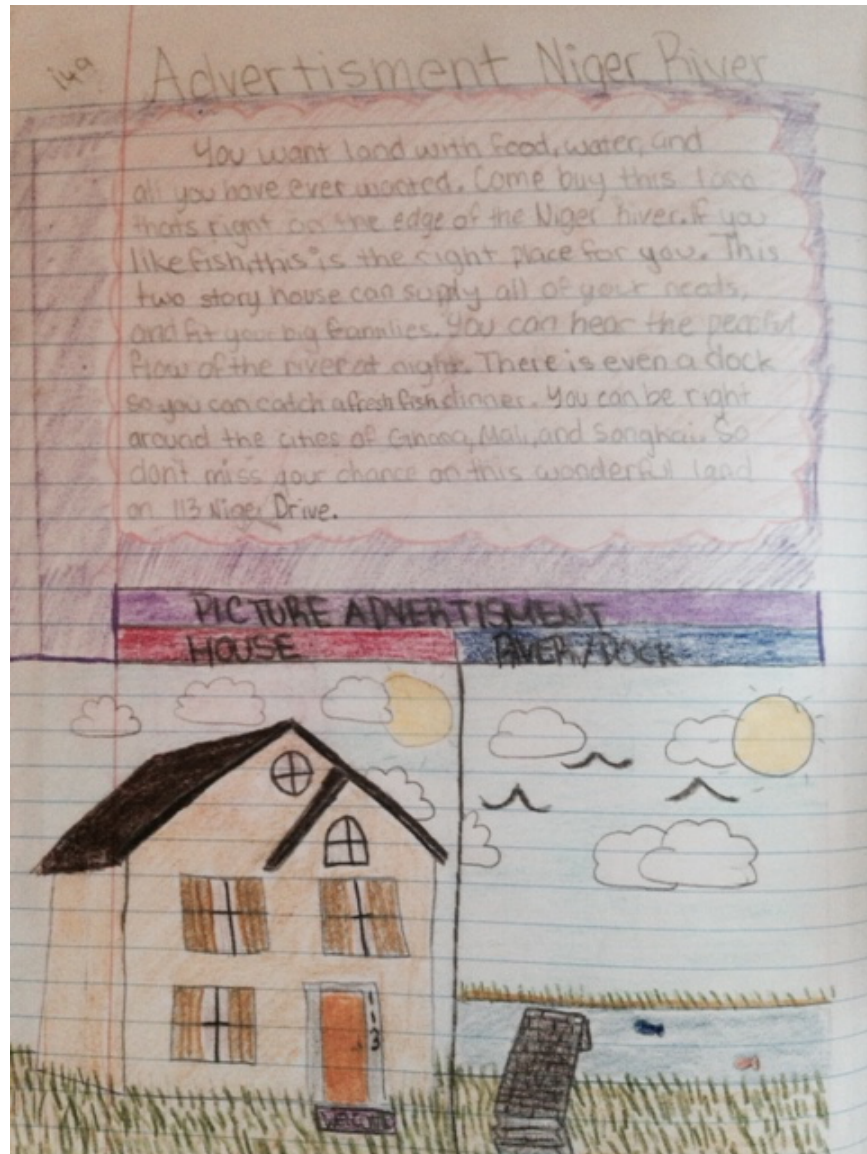 149
Advertisment Niger River
You want land with food, water, and
all you have ever wanted. Come buy this land
thats right on the edge of the Niger River. If you
like fish, this is the right place for you. This
two story house can supply all of your needs,
and fit your big families. You can hear the peaceful
flow of the river at night. There is even a dock
so you can catch a fresh fish dinner. You can be right
around the cities of Ghana, Mali, and Songhai. So
dont miss your chance on this wonderful land
on 113 Niger Drive.
PICTURE ADVERTISMENT
HOUSE RIVER/DOCK
113